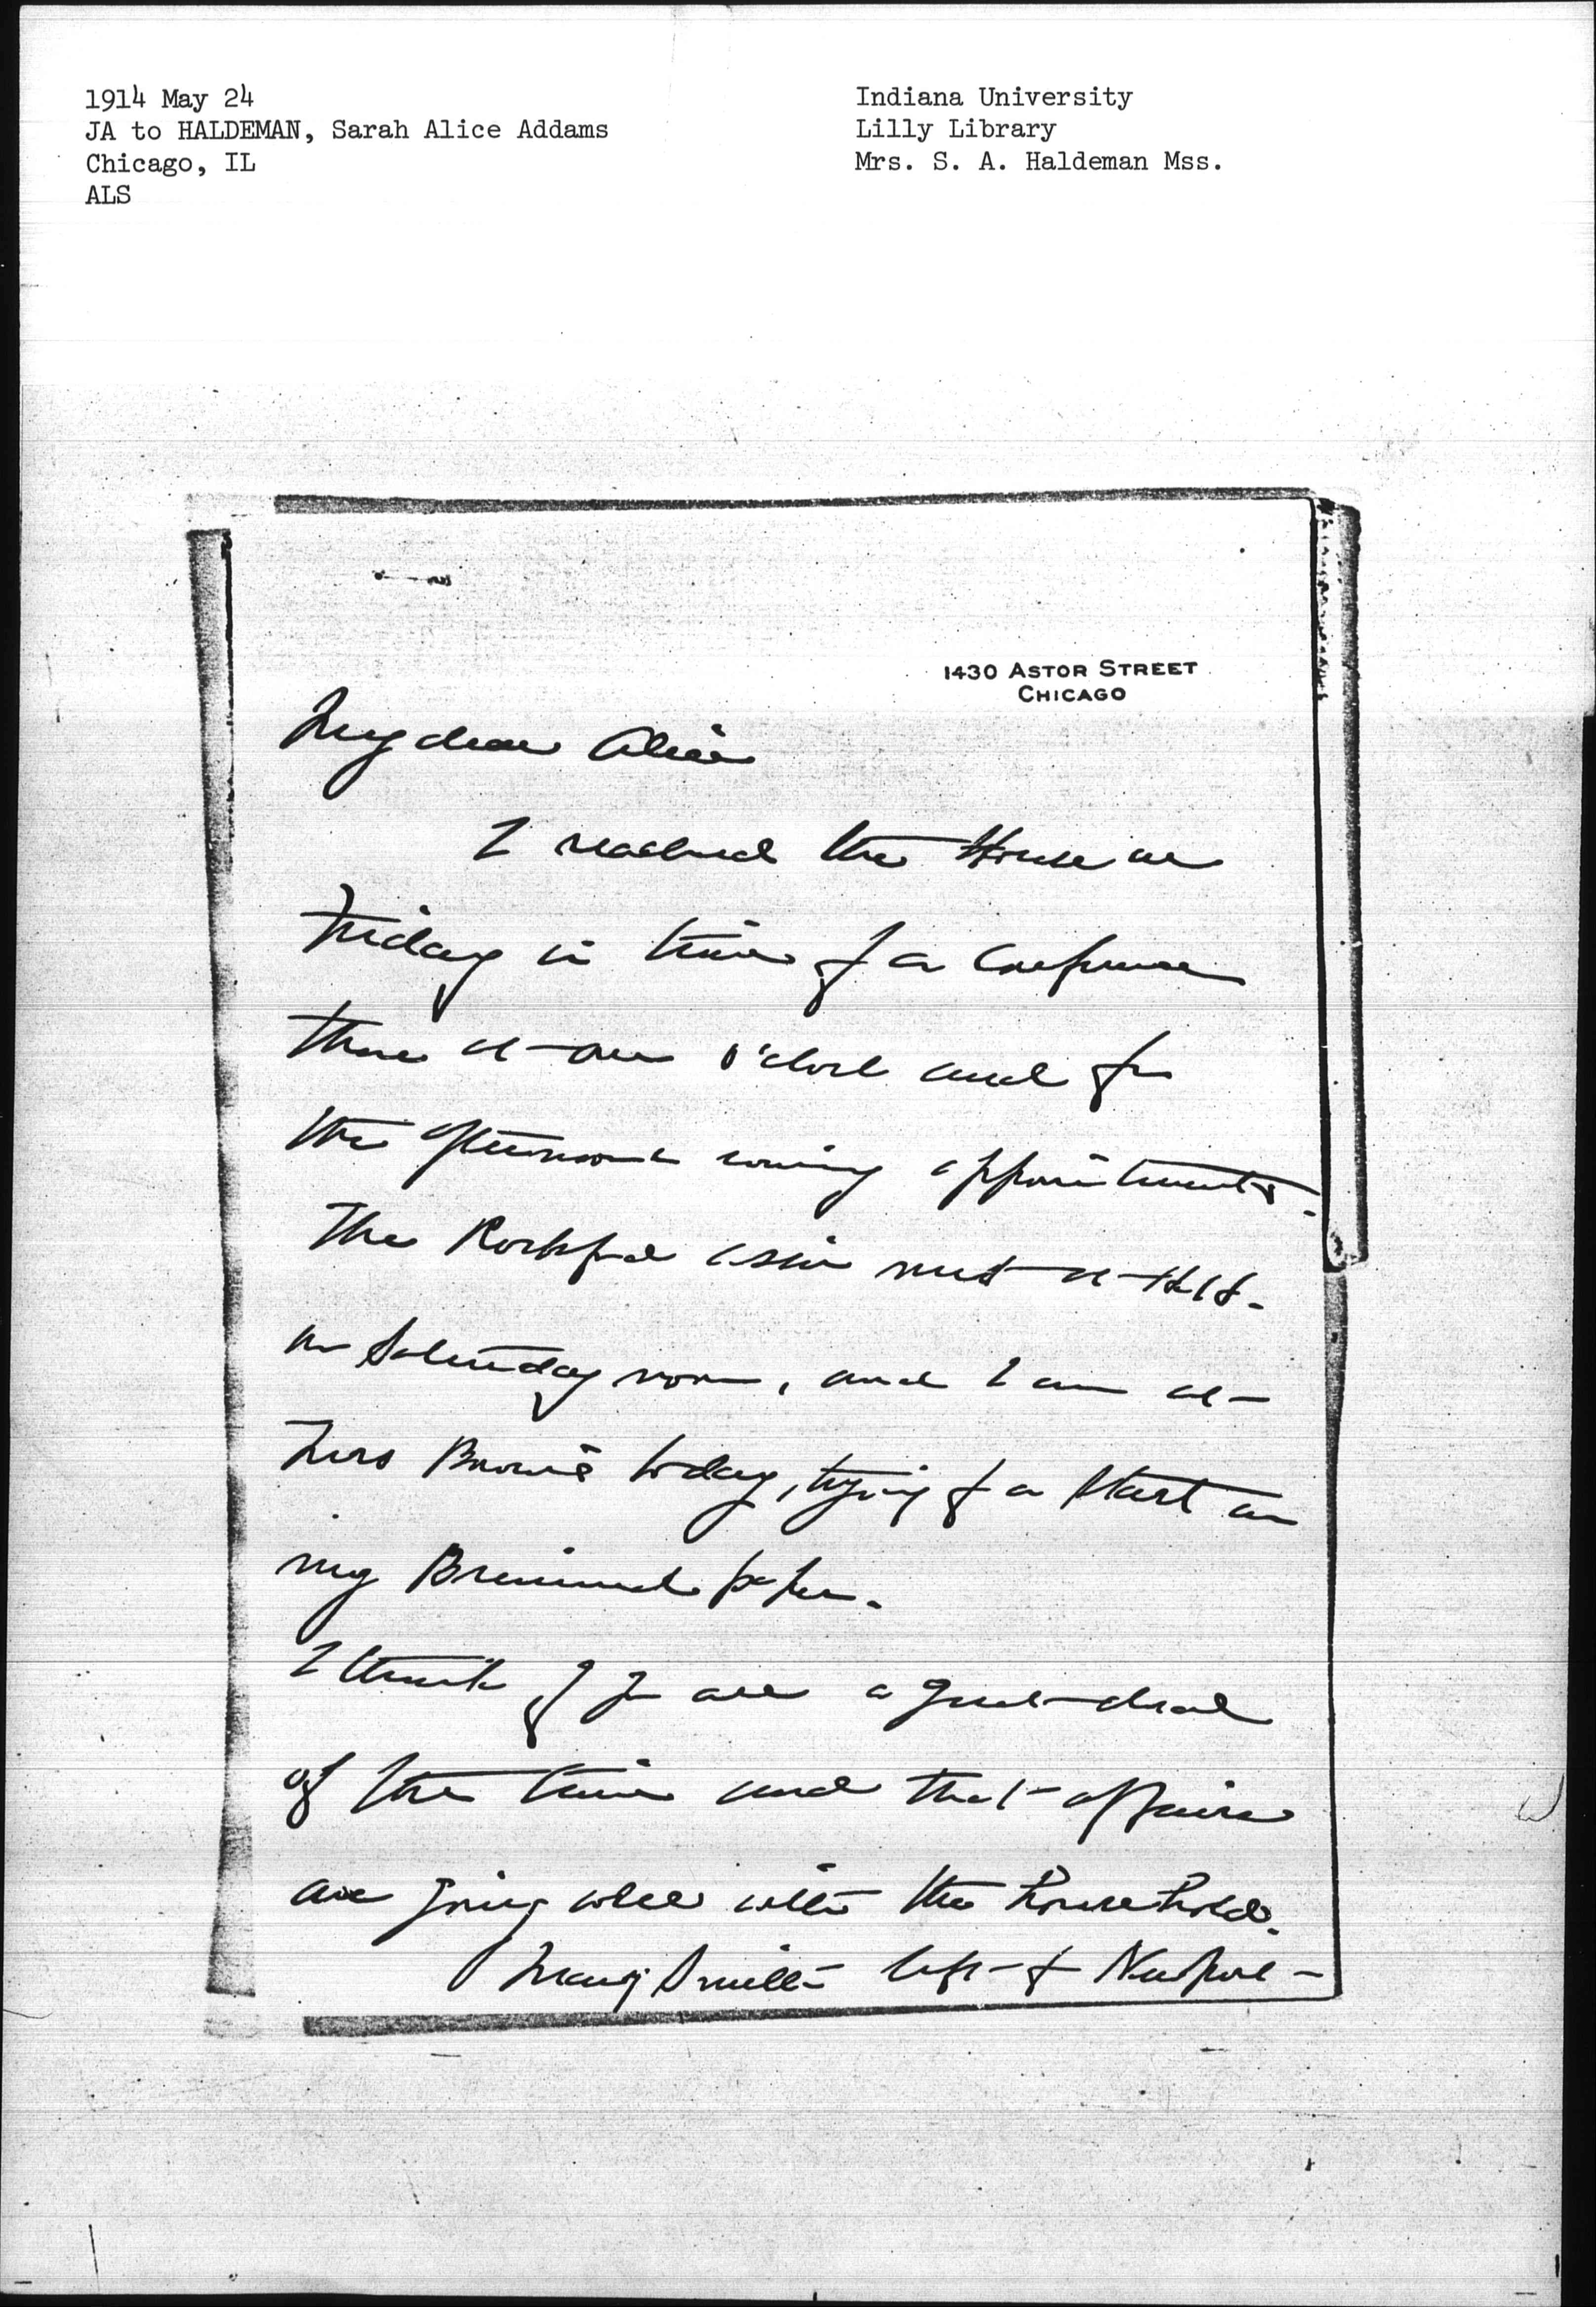 1914 May 24
JA to HALDEMAN, Sarah Alice Addams
Chicago, IL
ALS
Indiana University
Lilly Library
Mrs. S. A. Haldeman Mss.
1430 ASTOR STREET
CHICAGO
My dear Alice
I reached the House on
Friday in time for a conference
there at one o'clock and for
the afternoon appointments.
The Rockford met at H.H.
on Saturday noon, and I am at
Mrs Bowen's today, trying for a start on
my paper.
I think of you all a great deal
of the time and that affairs
are going well with the household.
Mary Smith left for Newport